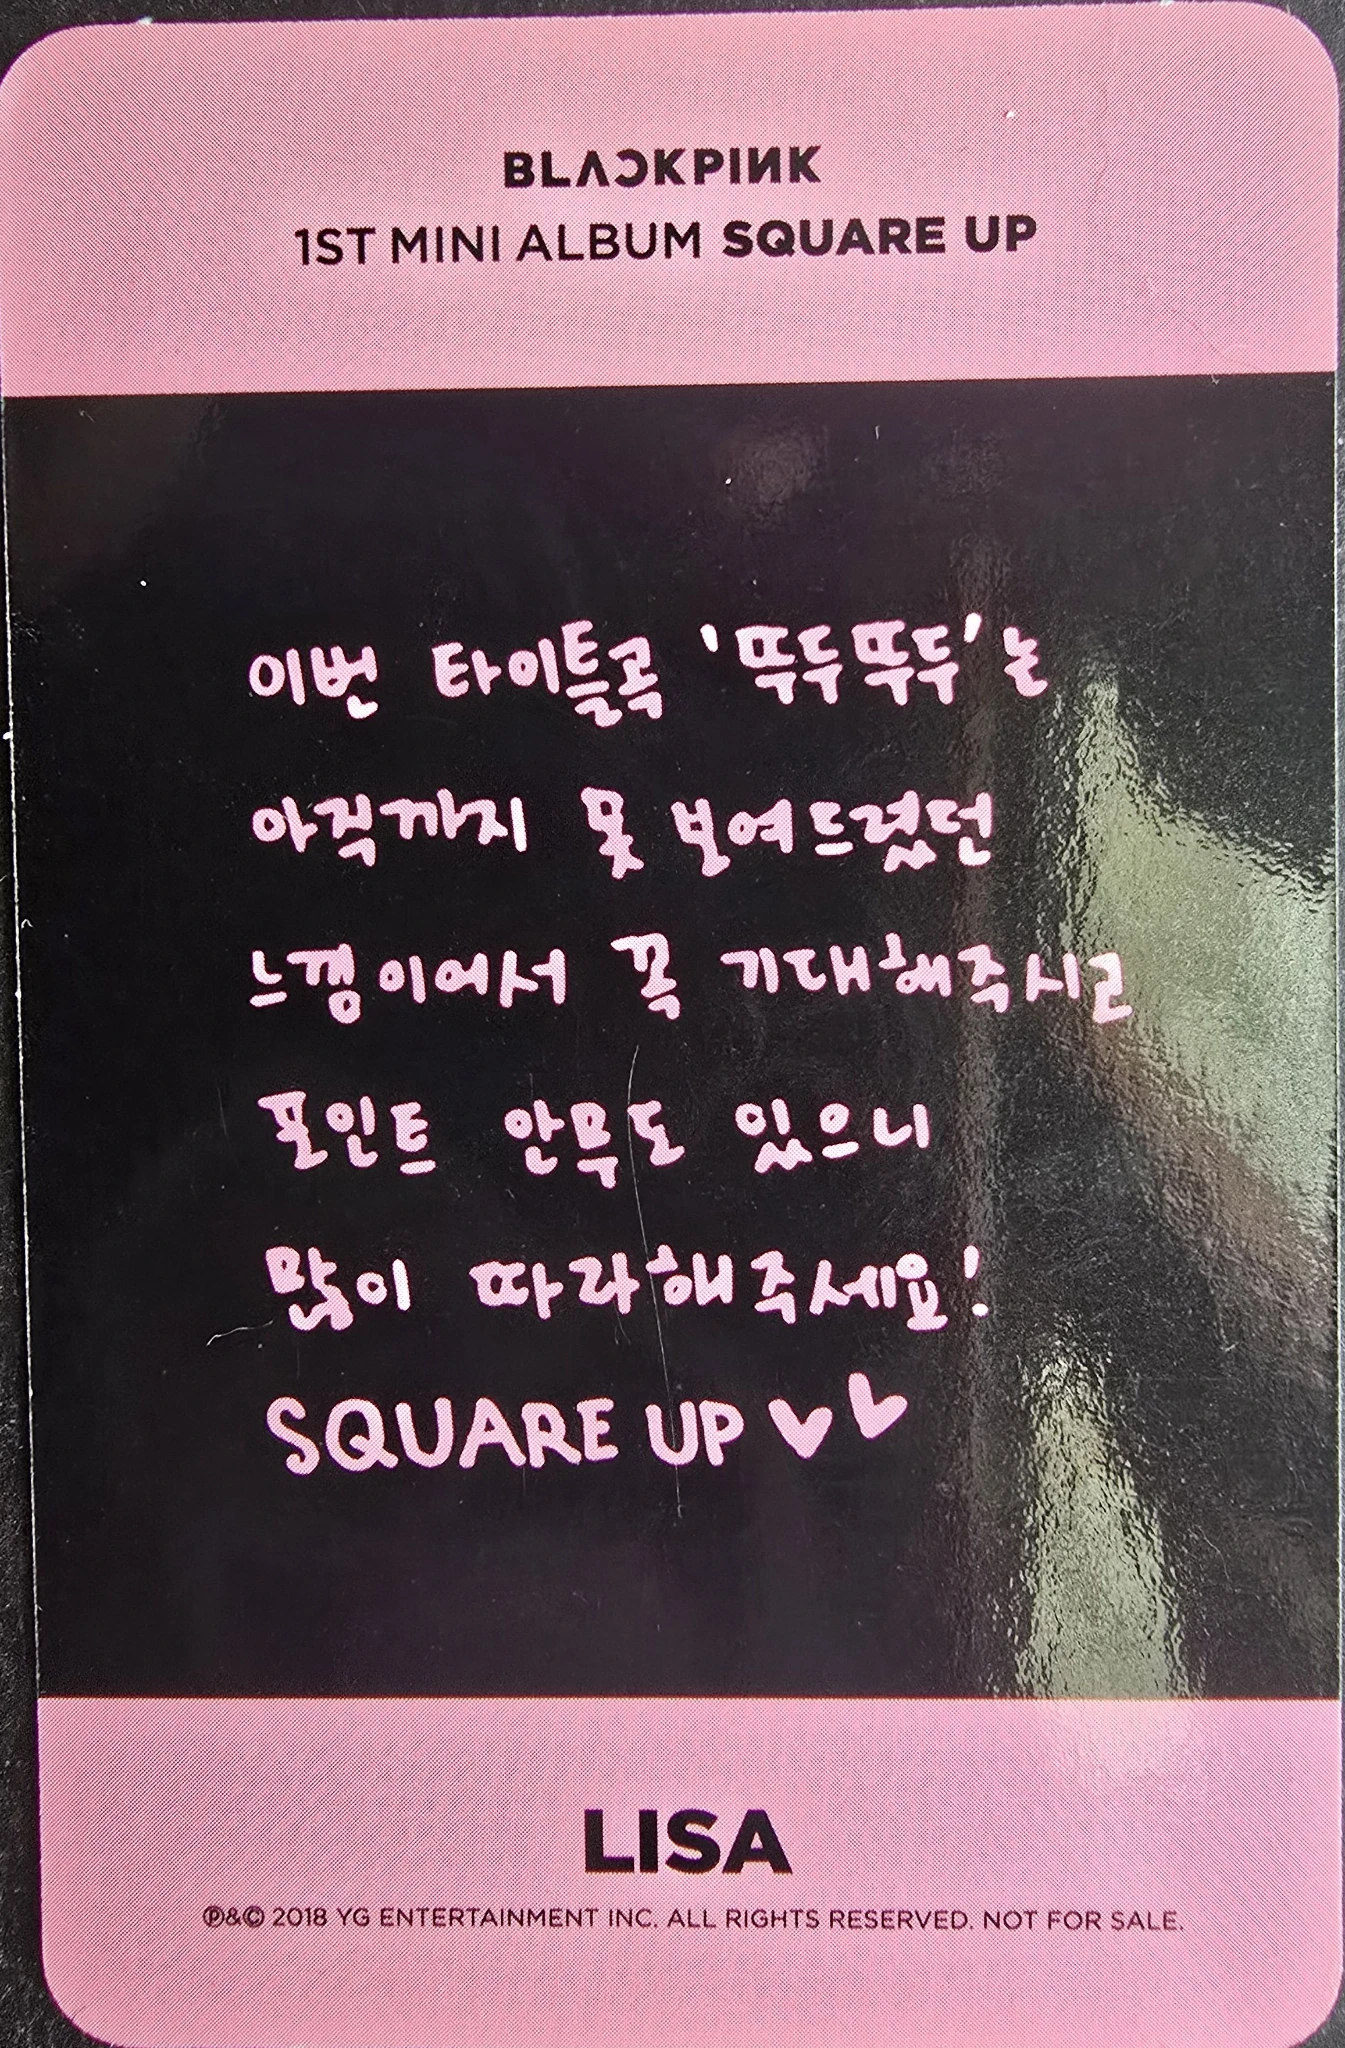 BLACKPINK
1ST MINI ALBUM SQUARE UP
이번 타이틀곡 '뚜두뚜두'는
아직까지 못 보여드렸던
느낌이어서 꼭 기대해주시고
포인트 안무도 있으니
많이 따라해주세요!
SQUARE UP ♥♥
LISA
℗&© 2018 YG ENTERTAINMENT INC. ALL RIGHTS RESERVED. NOT FOR SALE.